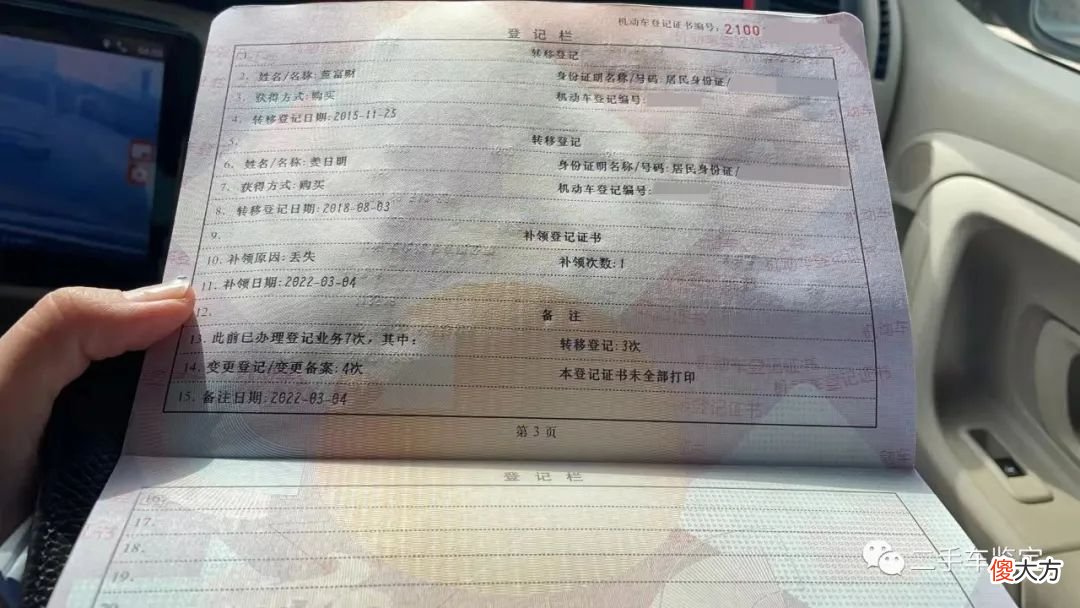 机动车登记证书编号: 2100
登记栏
1. 转移登记
2. 姓名/名称:董富财 身份证明名称/号码:居民身份证/
3. 获得方式:购买 机动车登记编号:
4. 转移登记日期:2015-11-25
5. 转移登记
6. 姓名/名称:姜日明 身份证明名称/号码:居民身份证/
7. 获得方式:购买 机动车登记编号:
8. 转移登记日期:2018-08-03
9. 补领登记证书
10. 补领原因:丢失 补领次数:1
11. 补领日期:2022-03-04
12. 备 注
13. 此前已办理登记业务7次,其中: 转移登记:3次
14. 变更登记/变更备案:4次 本登记证书未全部打印
15. 备注日期:2022-03-04
第 3 页
登记栏
16.
17.
18.
19.
二手车鉴定
傻大方